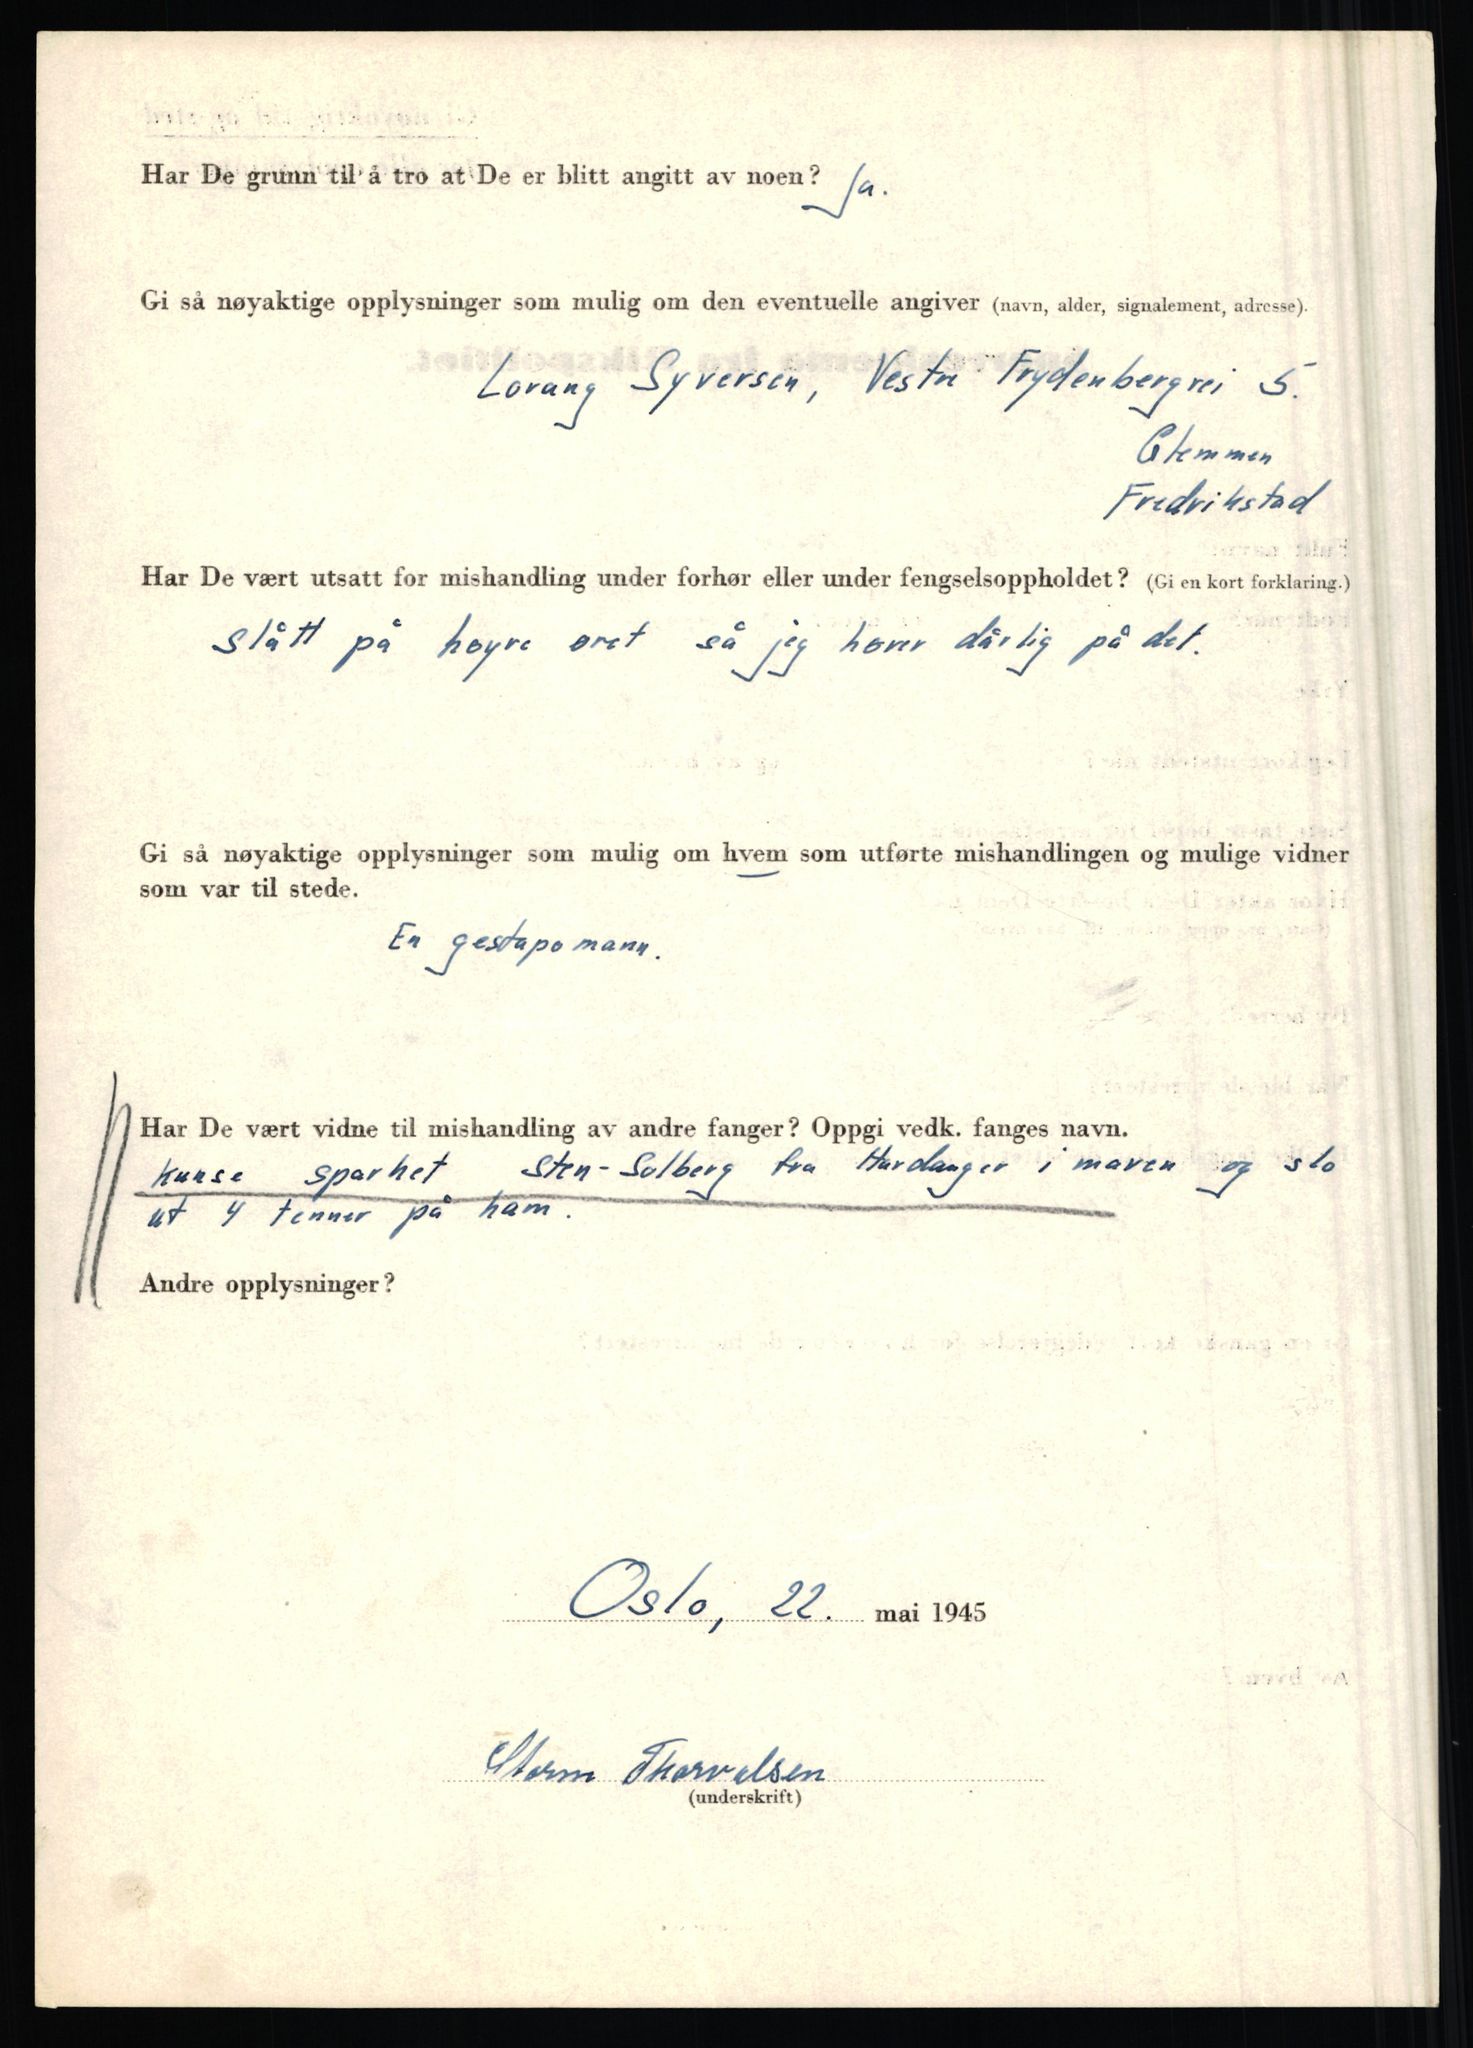 Har De grunn til å tro at De er blitt angitt av noen? Ja.
Gi så nøyaktige opplysninger som mulig om den eventuelle angiver (navn, alder, signalement, adresse).
Lorang Syversen, Vestre Frydenbergvei 5.
Glemmen
Fredrikstad
Har De vært utsatt for mishandling under forhør eller under fengselsoppholdet? (Gi en kort forklaring.)
Slått på høyre øret så jeg hører dårlig på det.
Gi så nøyaktige opplysninger som mulig om hvem som utførte mishandlingen og mulige vidner
som var til stede.
En gestapomann.
Har De vært vidne til mishandling av andre fanger? Oppgi vedk. fanges navn.
Kunse sparket Sten-Solberg fra Hardanger i maven og slo
ut 4 tenner på ham.
Andre opplysninger?
Oslo, 22. mai 1945
Storm Thorvalsen
(underskrift)